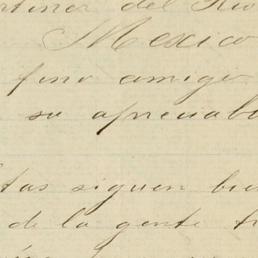 rtinez del Rio
Mexico
fino amigo
su apreciab
tas siguen bie
de la gente tr